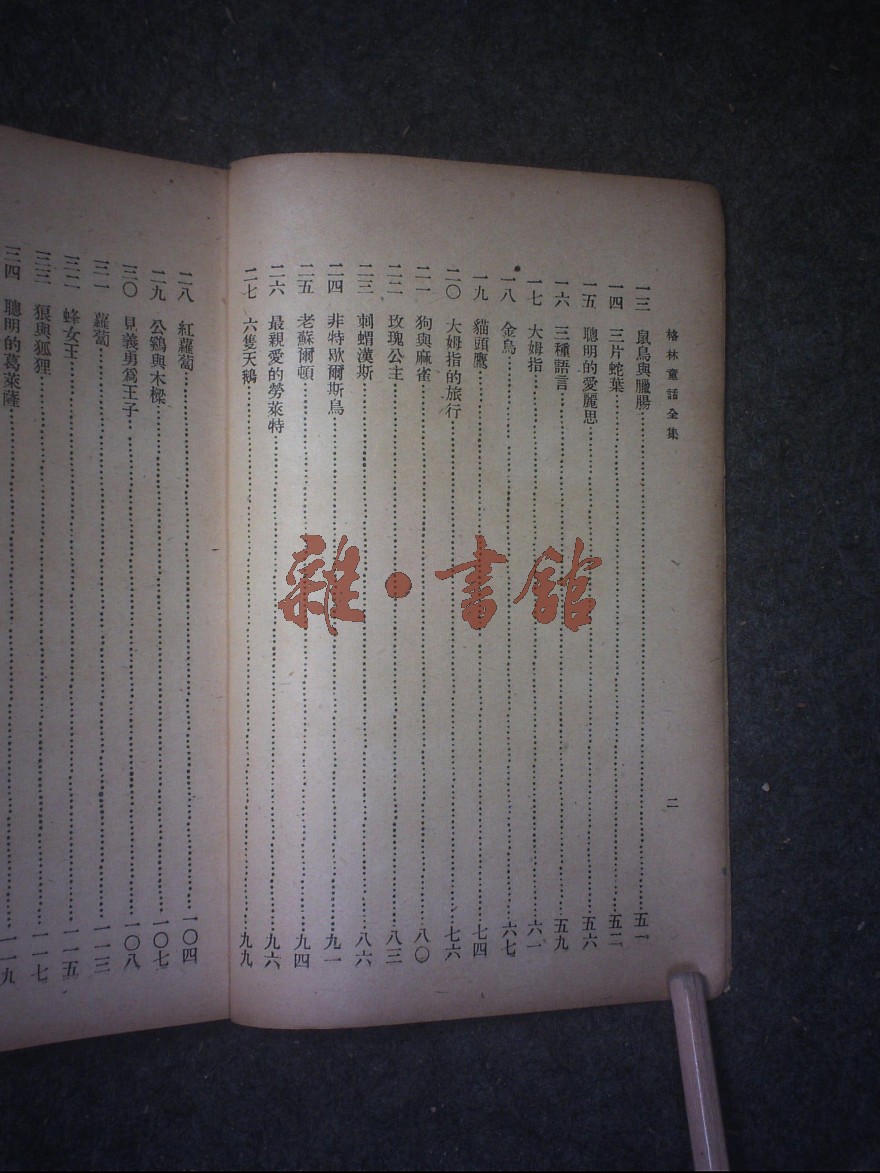 格林童話全集 二
一三 鼠鳥與臘腸 五一
一四 三片蛇葉 五二
一五 聰明的愛麗思 五六
一六 三種語言 五九
一七 大姆指 六一
一八 金鳥 六七
一九 貓頭鷹 七四
二〇 大姆指的旅行 七六
二一 狗與麻雀 八〇
二二 玫瑰公主 八三
二三 刺蝟漢斯 八六
二四 非特歇爾斯鳥 九一
二五 老蘇爾頓 九四
二六 最親愛的勞萊特 九六
二七 六隻天鵝 九九
二八 紅蘿蔔 一〇四
二九 公鷄與木樑 一〇七
三〇 見義勇爲王子 一〇八
三一 蘿蔔 一一三
三二 蜂女王 一一五
三三 狼與狐狸 一一七
三四 聰明的葛萊薩 一一九
雜·書館